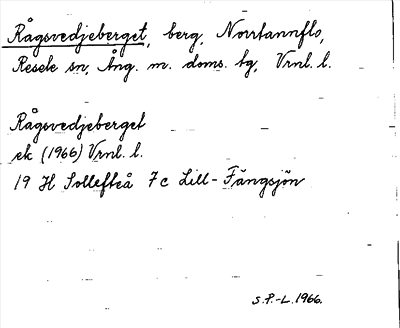 Rågsvedjeberget, berg, Norrtannflo,
Resele sn, Ång. m. doms. tg, Vrnl. l.
Rågsvedjeberget
ek (1966) Vrnl. l.
19 H Sollefteå 7c Lill-Fängsjön
S.P.-L. 1966.